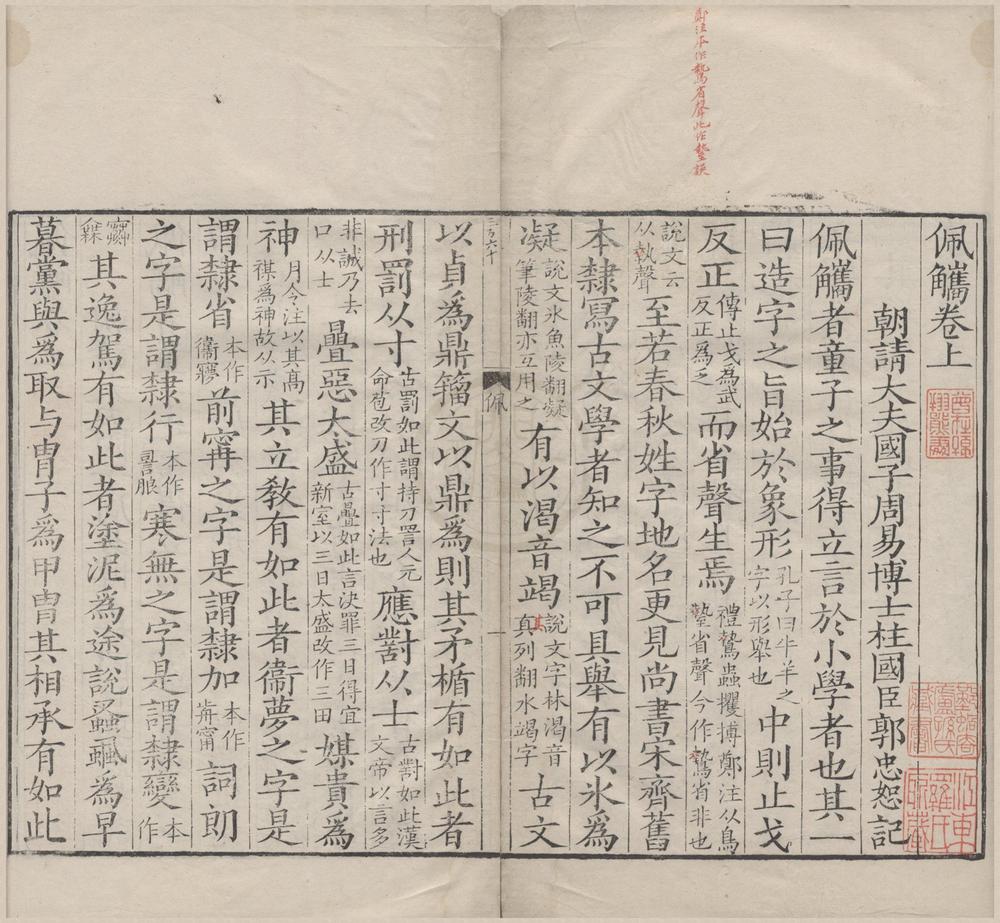 佩觿卷上
朝請大夫國子周易博士柱國臣郭忠恕記
佩觿者童子之事得立言於小學者也其一
曰造字之旨始於象形孔子曰牛羊之字以形舉也中則止戈
反正傳止戈為武反正為乏而省聲生焉禮驇蟲攫搏鄭注从鳥𫝑省聲今作驇省非也
說文云从執聲至若春秋姓字地名更見尚書宋齊舊
本隸寫古文學者知之不可具舉有以氷為
凝說文氷魚陵翻凝筆陵翻亦互用之有以渴音竭說文字林渴音其列翻水竭字古文
三百六十
佩
一
以貞爲鼎籀文以鼎爲則其矛楯有如此者
刑罰从寸古罰如此謂持刀詈人元命苞改刀作寸寸法也應對从士古對如此漢文帝以言多
非誠乃去口从士疊惡太盛古疊如此言決罪三日得宜新室以三日太盛改作三田媒貴爲
神月令注以其高禖為神故从示其立敎有如此者衞夢之字是
謂隸省本作𧗿㝱前寗之字是謂隸加本作歬甯詞朗
之字是謂隸行本作䛐朖寒無之字是謂隸變本作
𡫾橆其逸駕有如此者塗泥爲途說蝨䖝爲早
暮黨與爲取与胄子爲甲胄其相承有如此
鄭注本作驇省聲此作墊誤